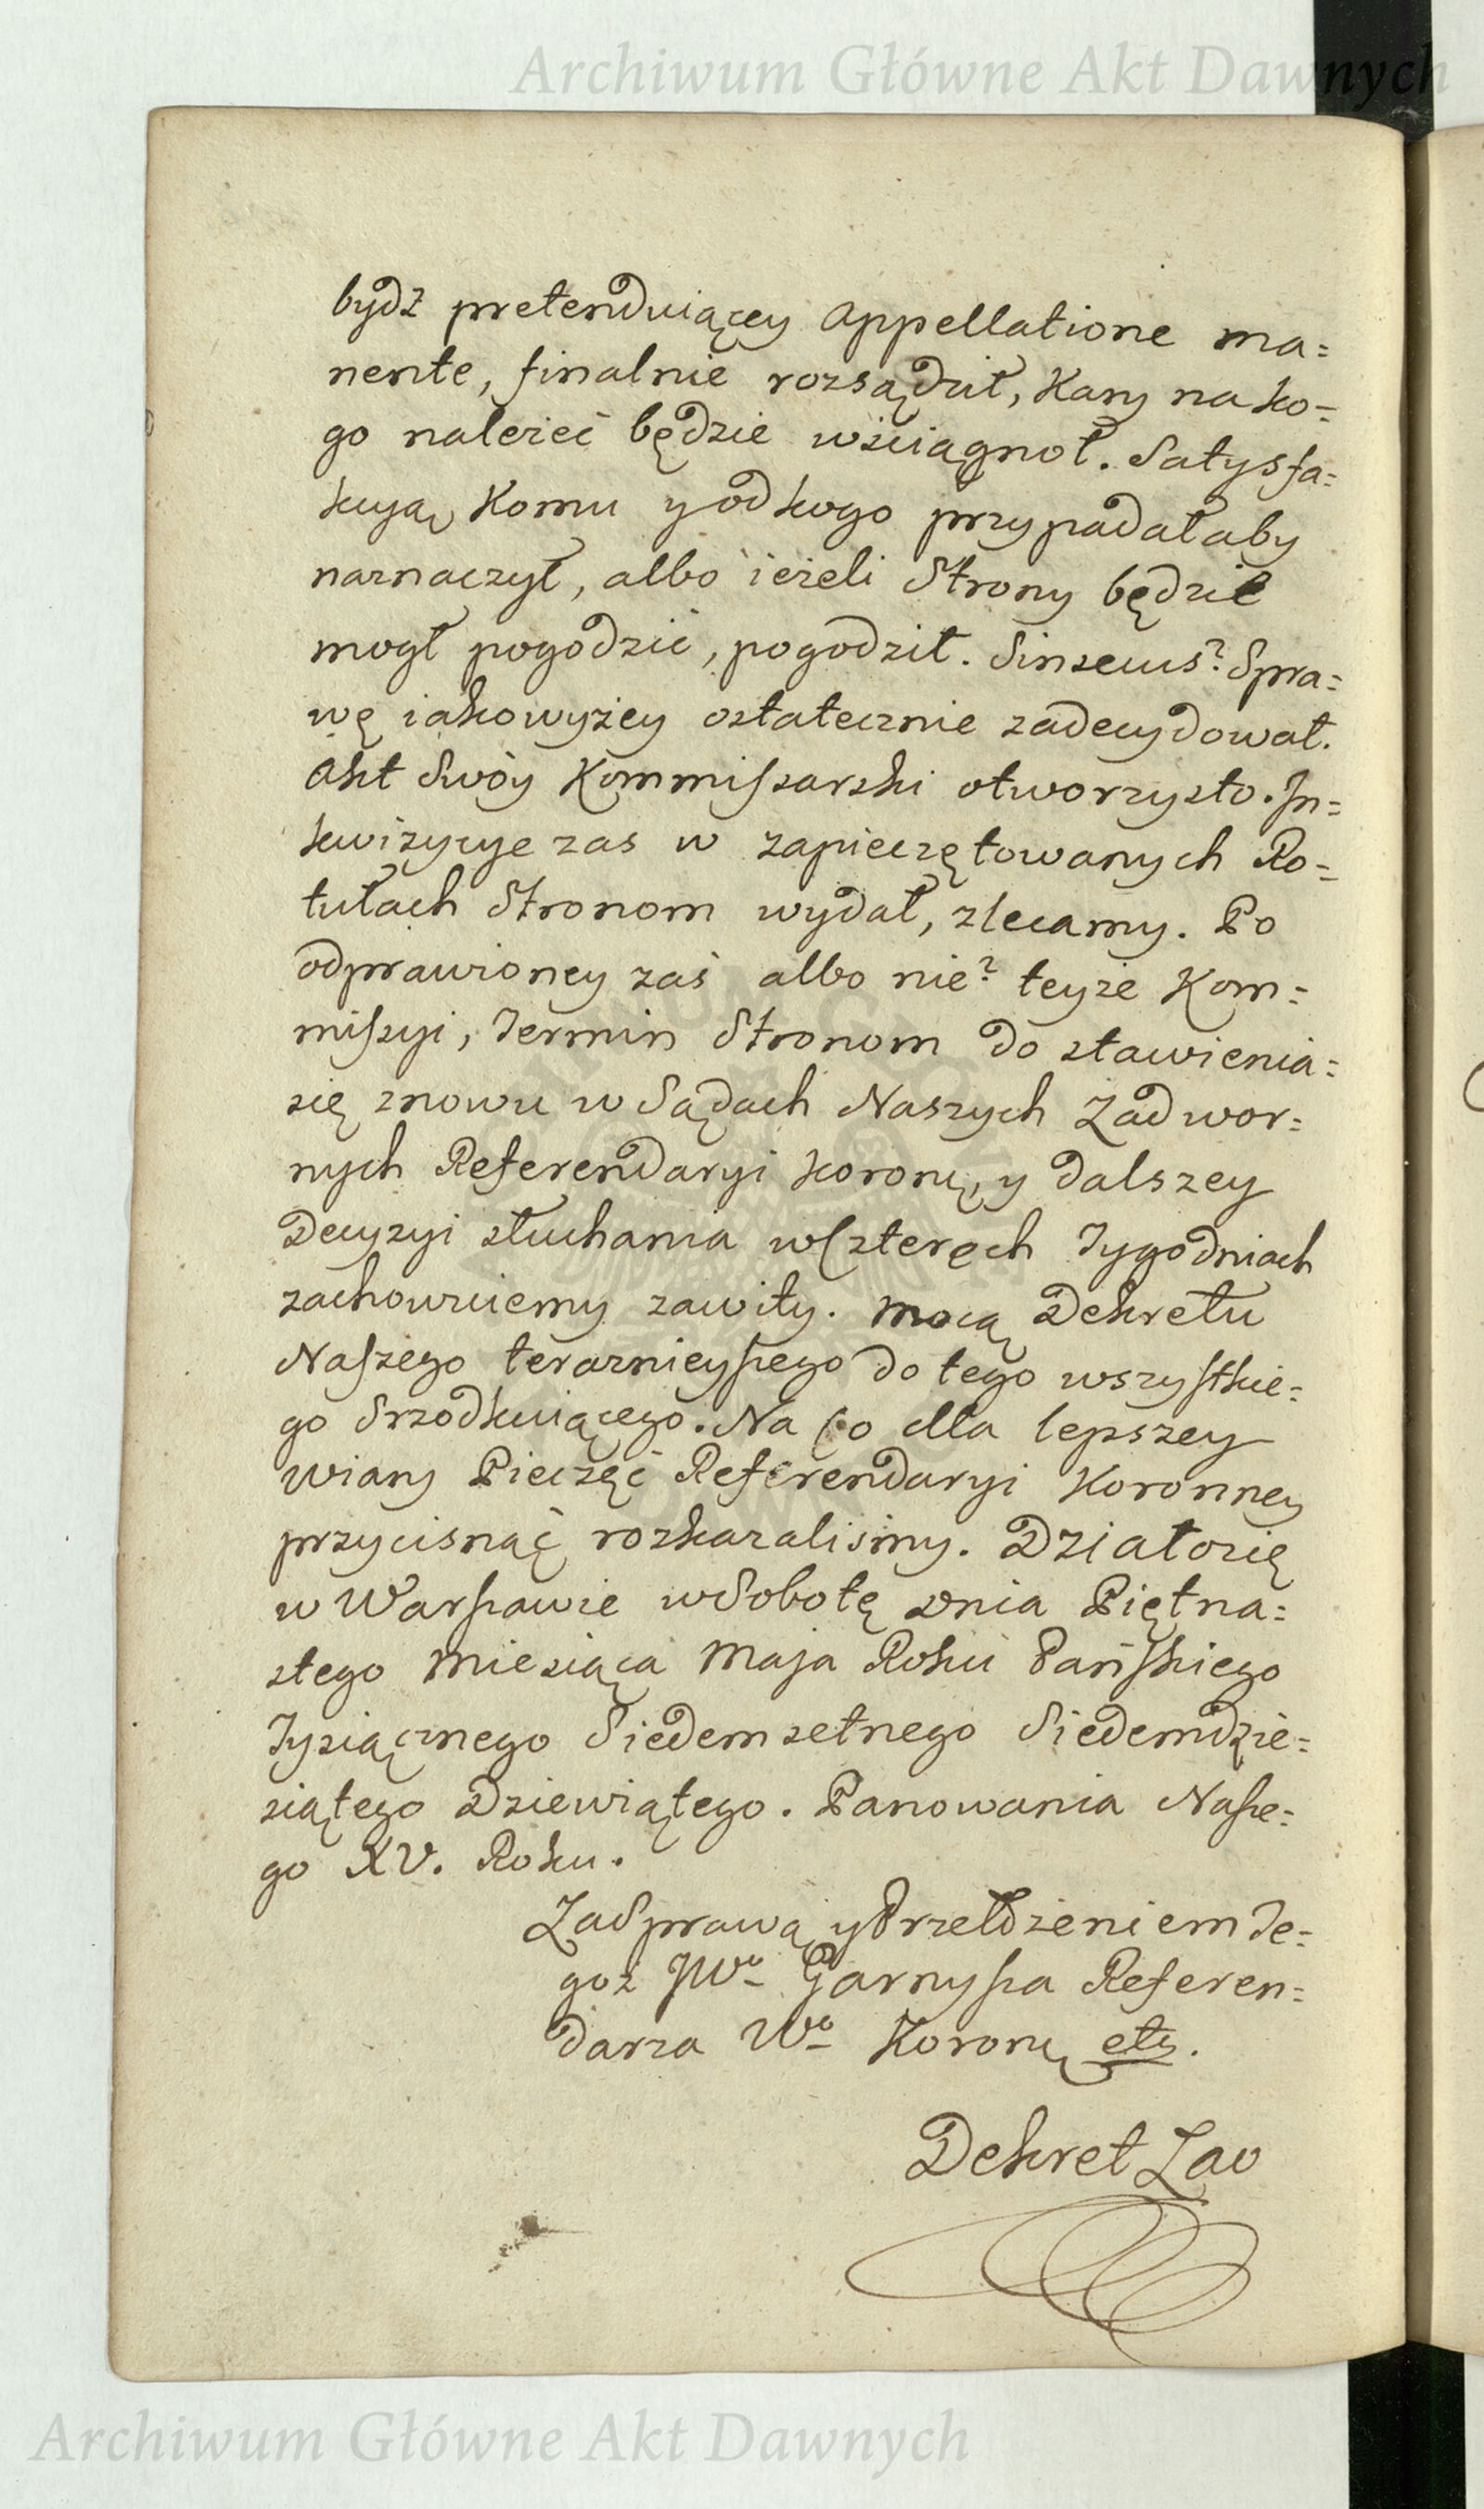 Archiwum Główne Akt Dawnych
bydz pretenduiącey Appellatione ma=
nente, finalnie rozsądził, Kary na ko=
go należeć będzie wściągnoł. Satysfa=
kcyą Komu y od kogo przypadałaby
naznaczył, albo ieżeli Strony będzie
mogł pogodzić, pogodził. Sinsecus? Spra=
wę iakowyżey ostatecznie zadecydował.
Akt Swóy Kommissarski otworzysto. In=
kwizycye zas w zapieczętowanych Ro=
tułach Stronom wydał, zlecamy. Po
odprawioney zaś albo nie? teyże Kom=
missyi, Termin Stronom do stawienia=
się znowu w Sądach Naszych Zadwor=
nych Referendaryi koronę, y dalszey
Decyzyi słuchania w Czterech Tygodniach
zachowuiemy zawity. Mocą Dekretu
Naszego terazniejszego do tego wszystkie=
go Srzodkuiącego. Na Co dla lepszey
wiary Pieczęć Referendaryi Koronney
przycisnąć rozkazalismy. Działosię
w Warszawie w Sobotę Dnia Piętna=
stego Miesiąca Maja Roku Pańskiego
Tysiącznego Siedemsetnego Siedemdzie=
siątego Dziewiątego. Panowania Nasze=
go XV. Roku.
Za Sprawą y Przełożeniem Te=
goż JWo Garnysza Referen=
darza Wo Koronę etc.
Dekret Zao
Archiwum Główne Akt Dawnych